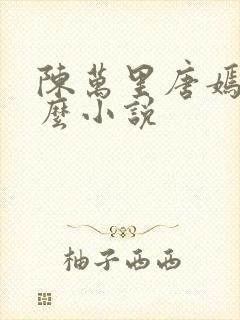 陳萬里唐嫣
麼小說
柚子西西